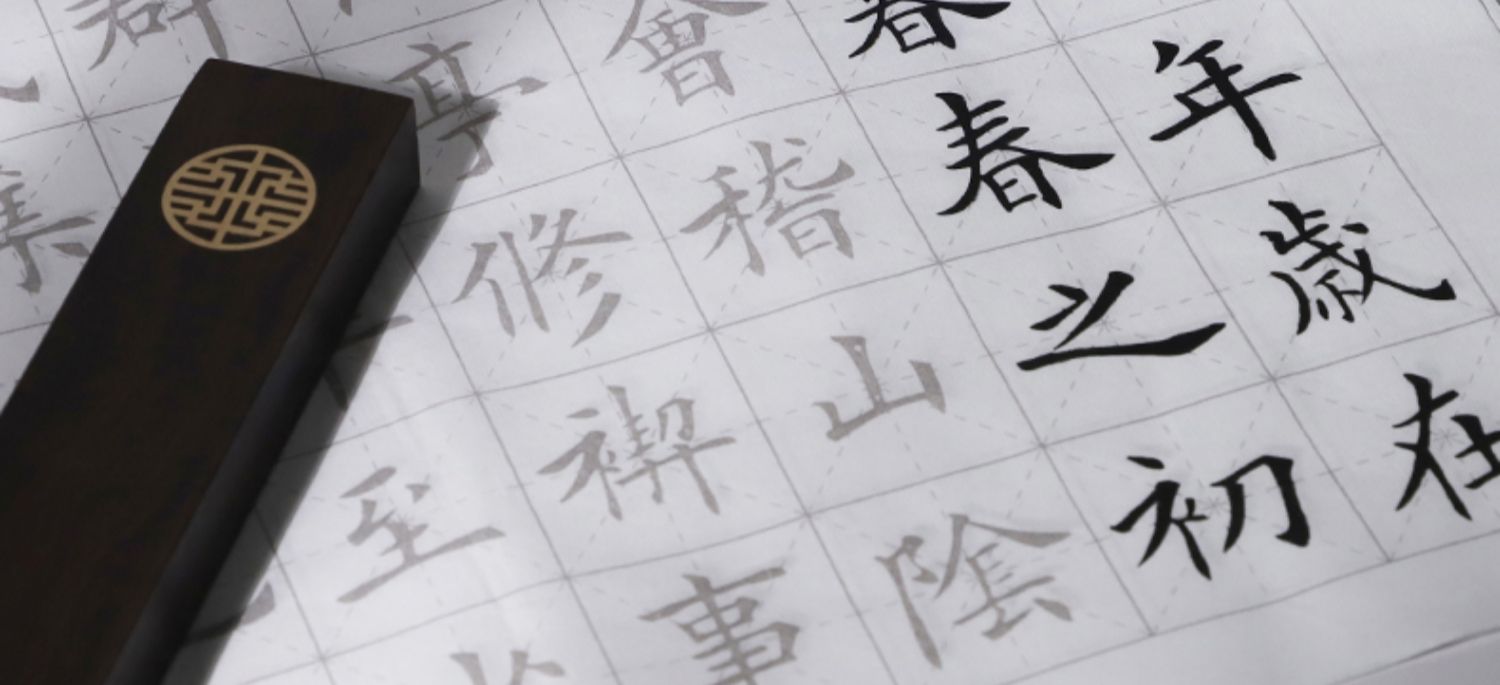 年歲在
春之初
會稽山陰
亭修禊事
群
至
集